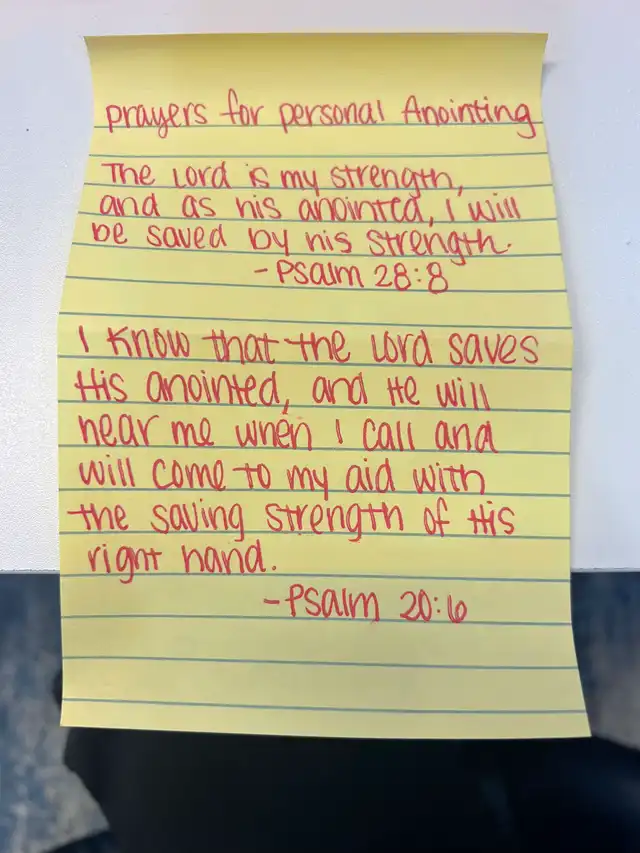 prayers for personal Anointing
The Lord is my strength,
and as his anointed, I will
be saved by his strength.
-Psalm 28:8
I know that the Lord saves
His anointed, and He will
hear me when I call and
will come to my aid with
the saving strength of His
right hand.
-Psalm 20:6